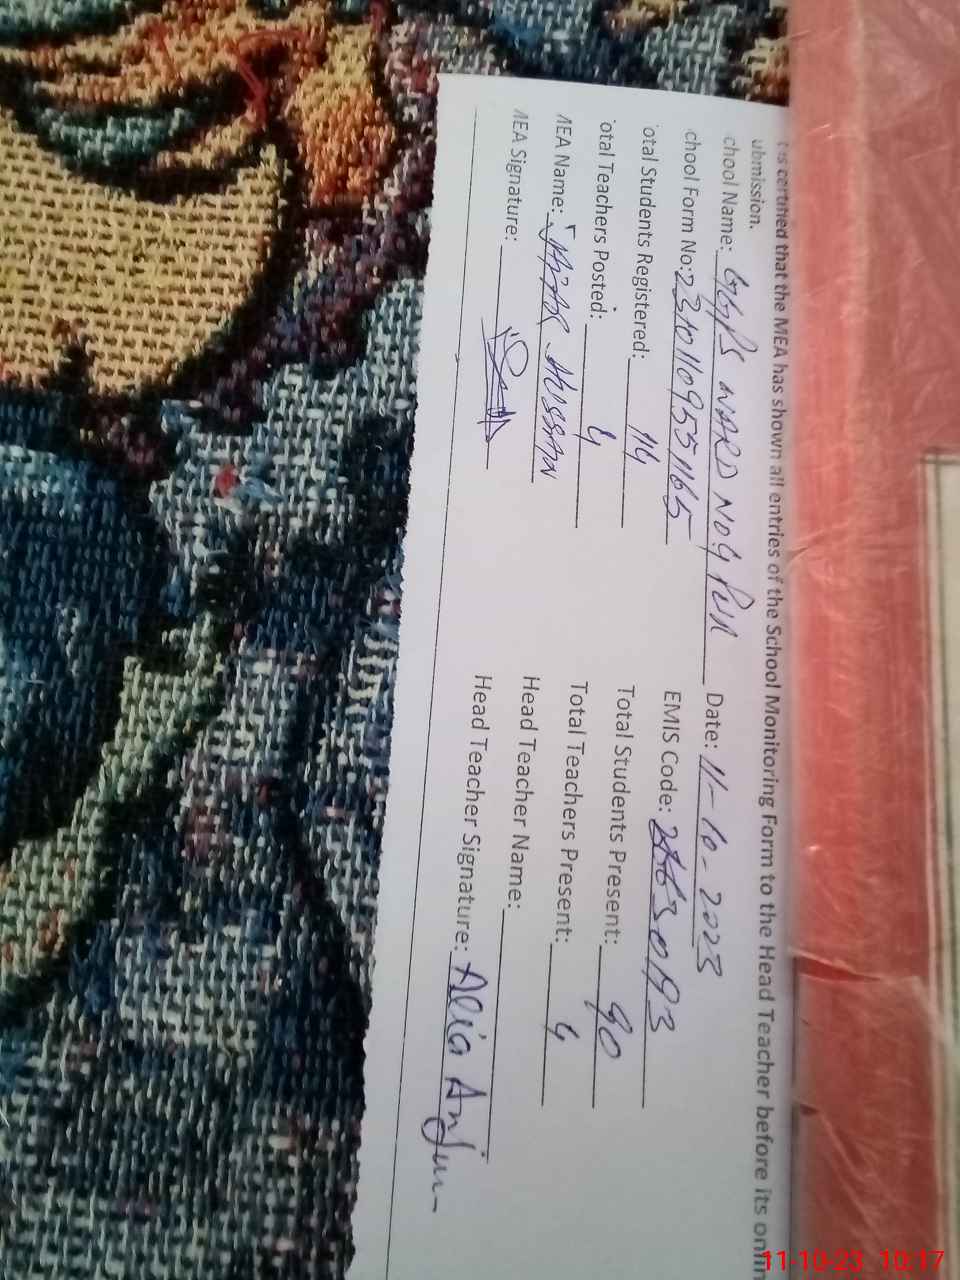 t is certified that the MEA has shown all entries of the School Monitoring Form to the Head Teacher before its onlin
ubmission.
chool Name: GGPS WARD NO 9 Date: 11-10-2023
chool Form No: EMIS Code:
otal Students Registered: 114 Total Students Present: 90
otal Teachers Posted: 4 Total Teachers Present: 4
MEA Name: Hussan Head Teacher Name:
MEA Signature: Head Teacher Signature: Alia Anjum
11-10-23 10:17